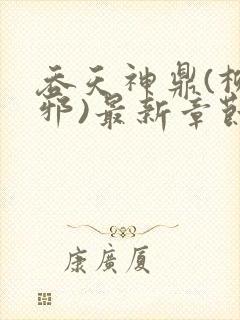 吞天神鼎(
邪)最新章節
康廣厦